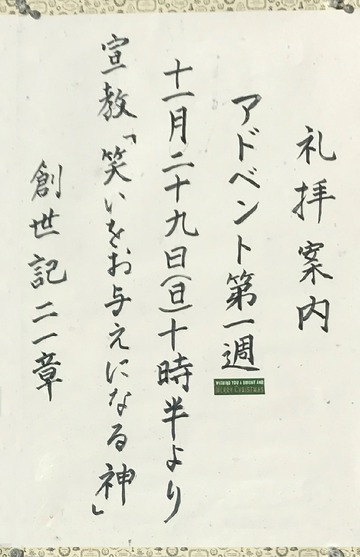 礼拝案内
アドベント第一週
WISHING YOU A BRIGHT AND
MERRY CHRISTMAS
十一月二十九日(日)十時半より
宣教「笑いをお与えになる神」
創世記二一章